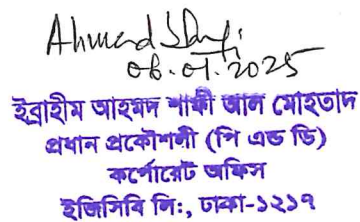 Ahmad Shafi
06.01.2025
ইব্রাহীম আহমদ শাফী আল মোহতাদ
প্রধান প্রকৌশলী (পি এন্ড ডি)
কর্পোরেট অফিস
ইজিসিবি লি:, ঢাকা-১২১৭